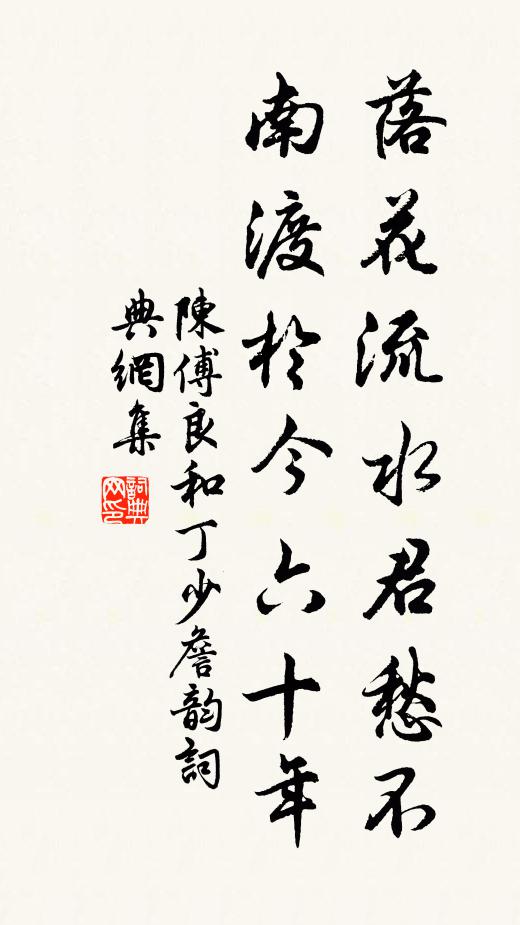 落花流水君愁不
南渡於今六十年
陳傅良和丁少詹韵詞
典網集
詞典网印